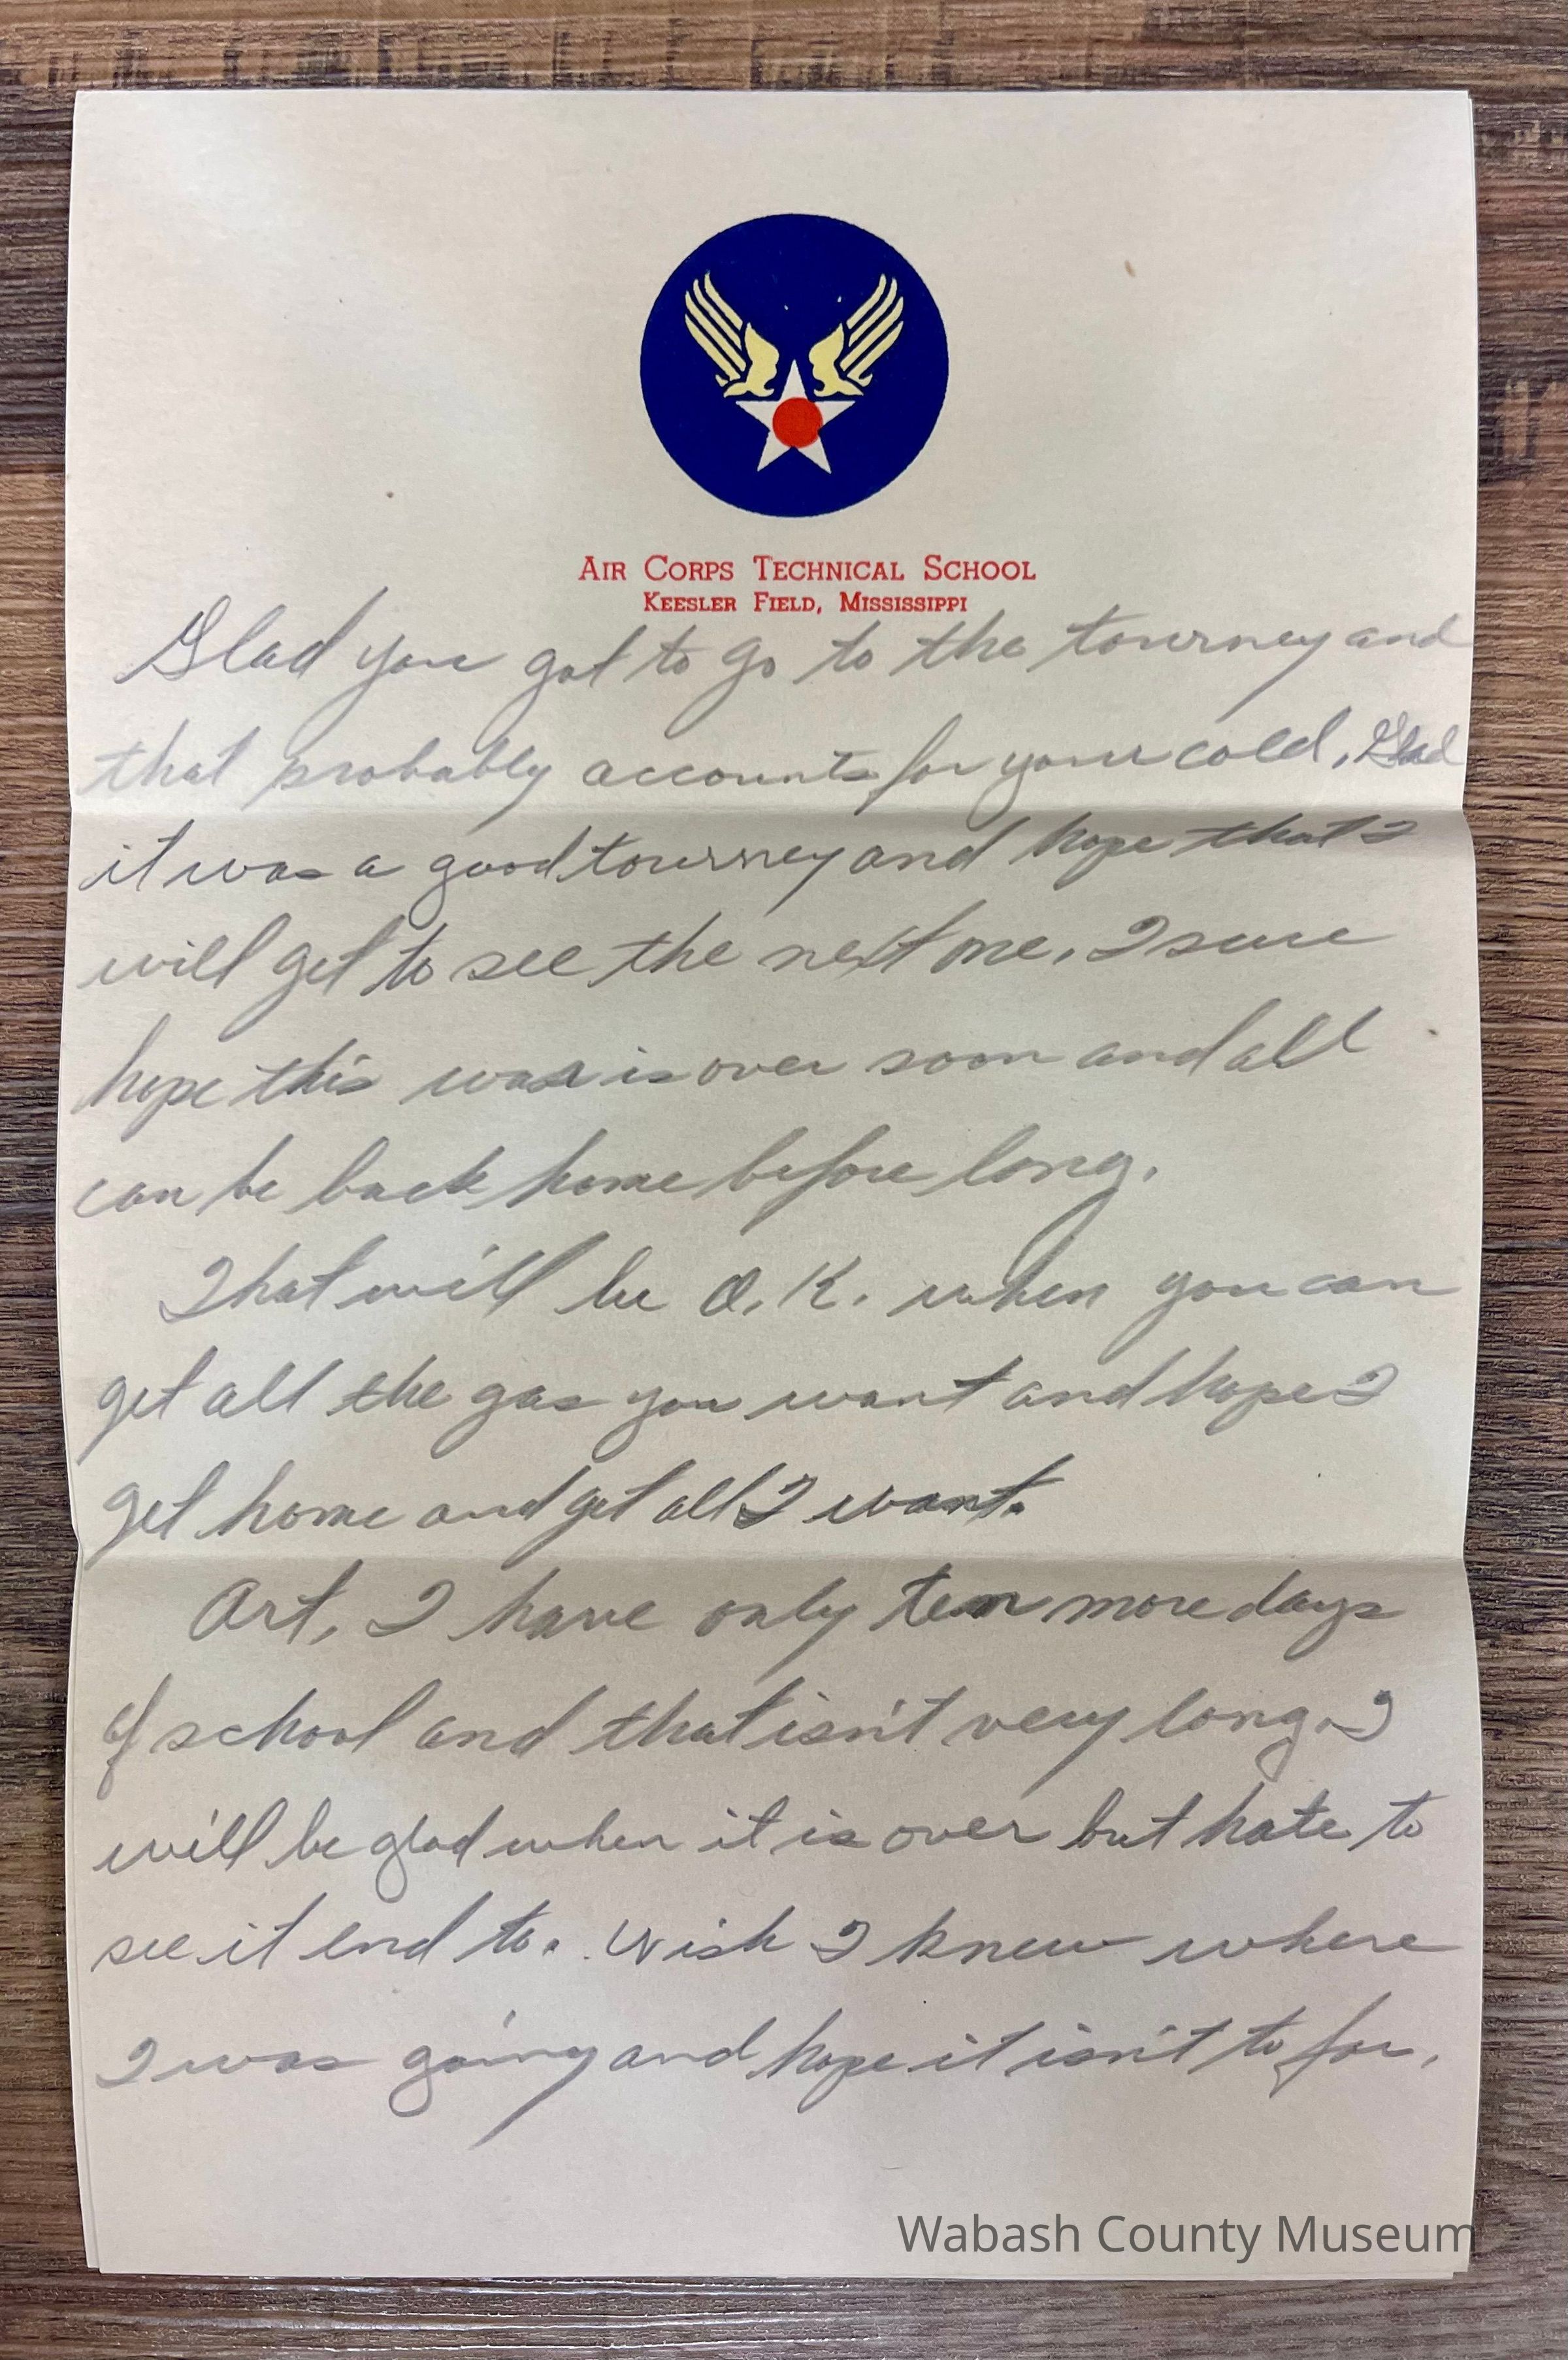 AIR CORPS TECHNICAL SCHOOL
KEESLER FIELD, MISSISSIPPI
Glad you got to go to the tourney and
that probably accounts for your cold. Glad
it was a good tourney and hope that I
will get to see the next one. I sure
hope this war is over soon and all
can be back home before long.
That will be O.K. when you can
get all the gas you want and hope I
get home and get all I want.
Art, I have only ten more days
of school and that isn't very long. I
will be glad when it is over but hate to
see it end to. Wish I knew where
I was going and hope it isn't to far.
Wabash County Museum